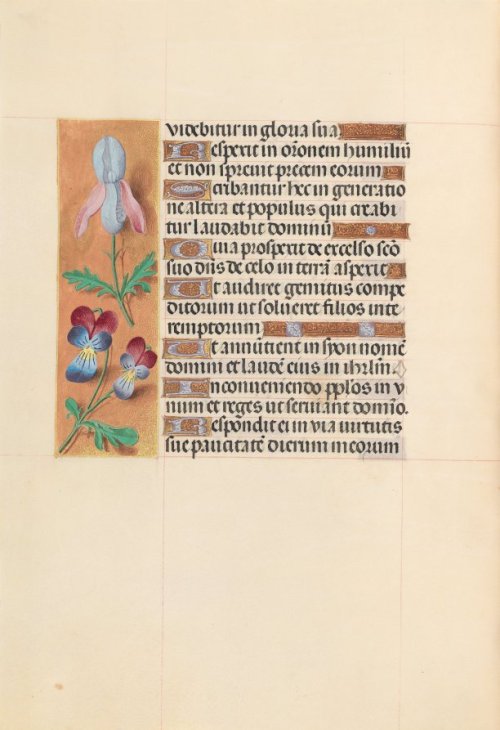 videbitur in gloria sua.
Respexit in orōnem humiliū
et non sprevit precem eorum
Scribantur hec in generatio
ne altera et populus qui creabi
tur laudabit dominū
Quia prospexit de excelso scō
suo dn̄s de celo in terrā aspexit
Ut audiret gemitus compe
ditorum ut solveret filios inte
remptorum
Ut annūtient in syon nomē
domini et laudē eius in ihrlm̄
In conveniendo pp̄los in v
num et reges ut serviant domīo.
Respondit ei in via virtutis
sue paucitatē dierum meorum